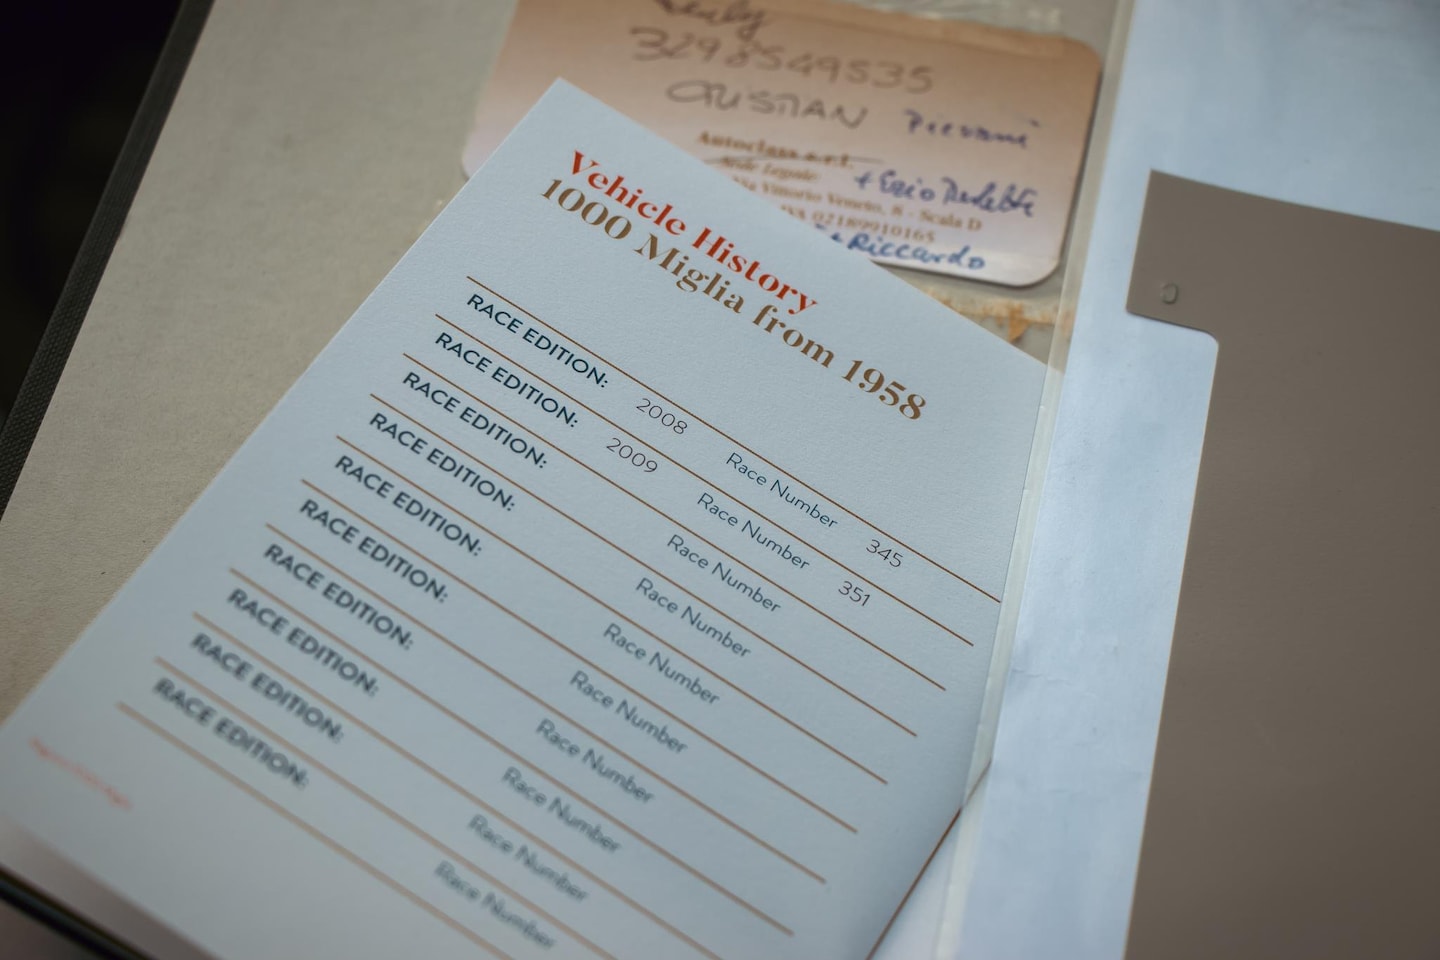 3298549535
CRISTIAN Pievani
Autoclass s.r.l.
Sede Legale:
Via Vittorio Veneto, 8 - Scala D
IVA 02189910165
Riccardo
Vehicle History
1000 Miglia from 1958
RACE EDITION: 2008 Race Number 345
RACE EDITION: 2009 Race Number 351
RACE EDITION: Race Number
RACE EDITION: Race Number
RACE EDITION: Race Number
RACE EDITION: Race Number
RACE EDITION: Race Number
RACE EDITION: Race Number
RACE EDITION: Race Number
RACE EDITION: Race Number